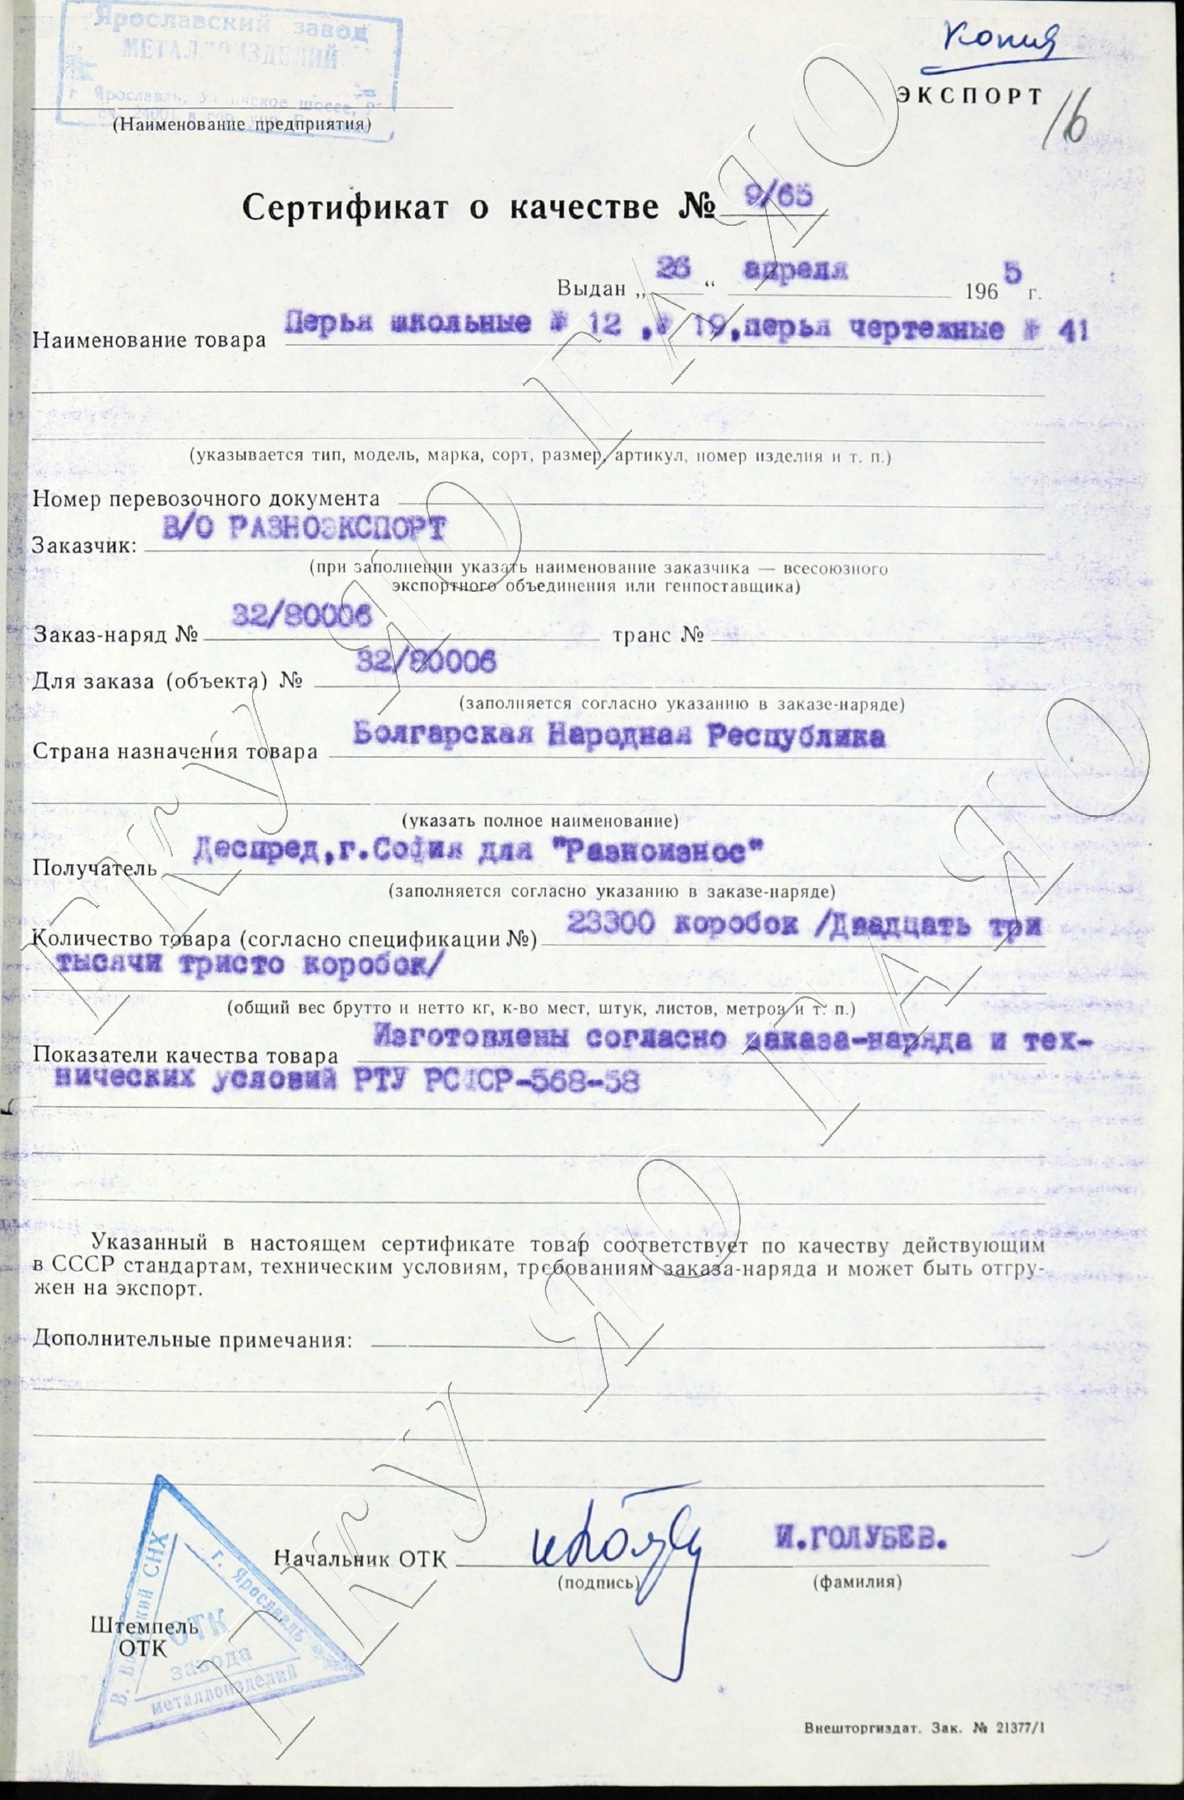 Копия
Ярославский завод
МЕТАЛЛОИЗДЕЛИЙ
г. Ярославль, шоссе,
ЭКСПОРТ
16
(Наименование предприятия)
Сертификат о качестве № 9/65
Выдан „ 26 “ апреля 1965 г.
Наименование товара Перья школьные № 12 ,№ 19,перья чертежные № 41
(указывается тип, модель, марка, сорт, размер, артикул, номер изделия и т. п.)
Номер перевозочного документа
Заказчик: В/О РАЗНОЭКСПОРТ
(при заполнении указать наименование заказчика — всесоюзного
экспортного объединения или генпоставщика)
Заказ-наряд № 32/80006 транс №
Для заказа (объекта) № 32/80006
(заполняется согласно указанию в заказе-наряде)
Страна назначения товара Болгарская Народная Республика
(указать полное наименование)
Получатель Деспред,г.София для "Разноизнос"
(заполняется согласно указанию в заказе-наряде)
Количество товара (согласно спецификации №) 23300 коробок /Двадцать три
тысячи тристо коробок/
(общий вес брутто и нетто кг, к-во мест, штук, листов, метров и т. п.)
Показатели качества товара Изготовлены согласно заказа-наряда и тех-
нических условий РТУ РСФСР-568-58
Указанный в настоящем сертификате товар соответствует по качеству действующим
в СССР стандартам, техническим условиям, требованиям заказа-наряда и может быть отгру-
жен на экспорт.
Дополнительные примечания:
Начальник ОТК И.ГОЛУБЕВ.
(подпись) (фамилия)
Штемпель
ОТК
СНХ
г. Ярославль
ОТК
завода
металлоизделий
Внешторгиздат. Зак. № 21377/1
ГКУ ЯО ГАЯО
ГКУ ЯО ГАЯО